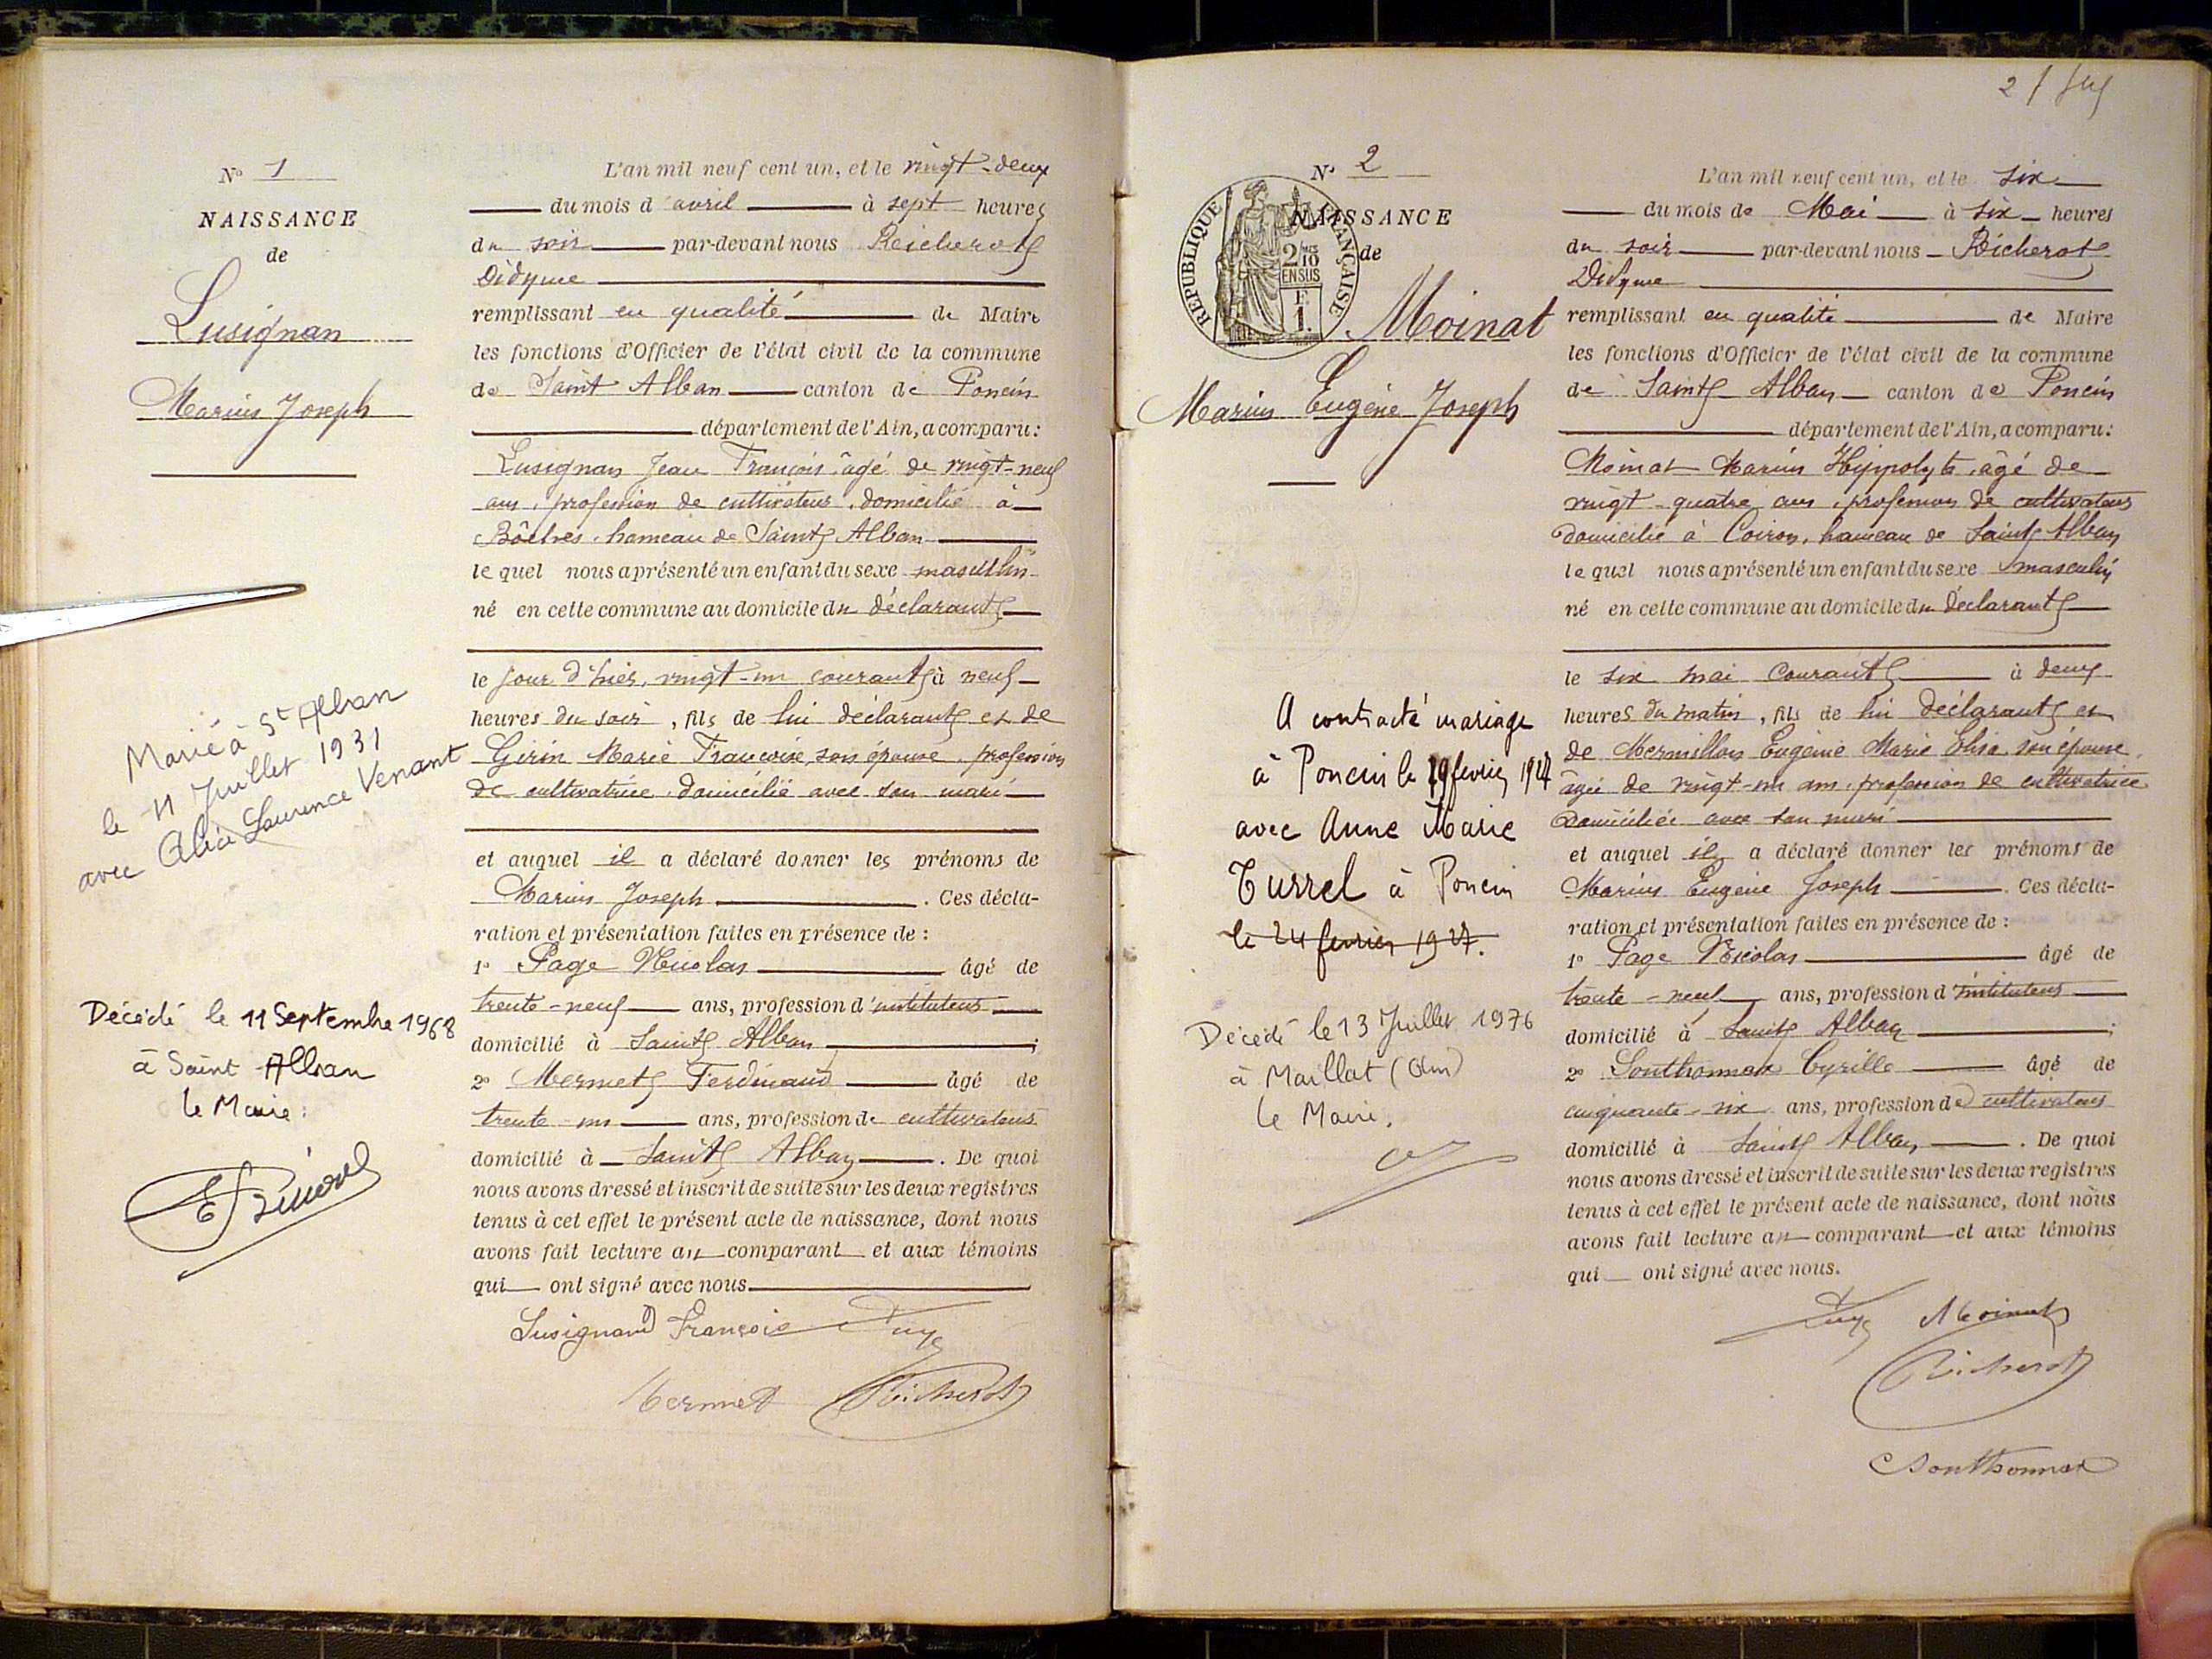 N° 1
NAISSANCE
de
Lusignan
Marius Joseph
Marié à St Alban
le 11 Juillet 1931
avec Alice Laurence Venant
Décédé le 11 Septembre 1968
à Saint Alban
le Maire:
L'an mil neuf cent un, et le vingt-deux
du mois d'avril à sept heures
du soir par-devant nous Richerot
Didyme
remplissant en qualité de Maire
les fonctions d'Officier de l'état civil de la commune
de Saint Alban canton de Poncin
département de l'Ain, a comparu:
Lusignan Jean François âgé de vingt-neuf
ans, profession de cultivateur, domicilié à
Bôches, hameau de Saint Alban
le quel nous a présenté un enfant du sexe masculin
né en cette commune au domicile du déclarant
le jour d'hier, vingt-un courant à neuf
heures du soir, fils de lui déclarant et de
Girin Marie Françoise, son épouse, profession
de cultivatrice domiciliée avec son mari
et auquel il a déclaré donner les prénoms de
Marius Joseph. Ces décla-
ration et présentation faites en présence de:
1° Page Nicolas âgé de
trente-neuf ans, profession d'instituteur
domicilié à Saint Alban;
2° Mermet Ferdinand âgé de
trente-un ans, profession de cultivateur
domicilié à Saint Alban. De quoi
nous avons dressé et inscrit de suite sur les deux registres
tenus à cet effet le présent acte de naissance, dont nous
avons fait lecture au comparant et aux témoins
qui ont signé avec nous
Lusignand François Page
Mermet Richerot
2
N° 2
RÉPUBLIQUE FRANÇAISE
2/10 EN SUS
F 1
NAISSANCE
de
Moinat
Marius Eugène Joseph
A contracté mariage
à Poncin le 19 février 1927
avec Anne Marie
Turrel à Poncin
le 24 février 1927.
Décédé le 13 Juillet 1976
à Maillat (Ain)
le Maire.
L'an mil neuf cent un, et le six
du mois de Mai à six heures
du soir par-devant nous Richerot
Didyme
remplissant en qualité de Maire
les fonctions d'Officier de l'état civil de la commune
de Saint Alban canton de Poncin
département de l'Ain, a comparu:
Moinat Marius Hyppolyte, âgé de
vingt-quatre ans, profession de cultivateur
domicilié à Coiron, hameau de Saint Alban
le quel nous a présenté un enfant du sexe masculin
né en cette commune au domicile du déclarant
le six mai courant à deux
heures du matin, fils de lui déclarant et
de Mermillon Eugènie Marie Elisa son épouse,
âgée de vingt-un ans, profession de cultivatrice
domiciliée avec son mari
et auquel il a déclaré donner les prénoms de
Marius Eugène Joseph. Ces décla-
ration et présentation faites en présence de:
1° Page Nicolas âgé de
trente-neuf ans, profession d'instituteur
domicilié à Saint Alban;
2° Southonnax Cyrille âgé de
cinquante-six ans, profession de cultivateur
domicilié à Saint Alban. De quoi
nous avons dressé et inscrit de suite sur les deux registres
tenus à cet effet le présent acte de naissance, dont nous
avons fait lecture au comparant et aux témoins
qui ont signé avec nous.
Page Moinat
Richerot
Southonnax